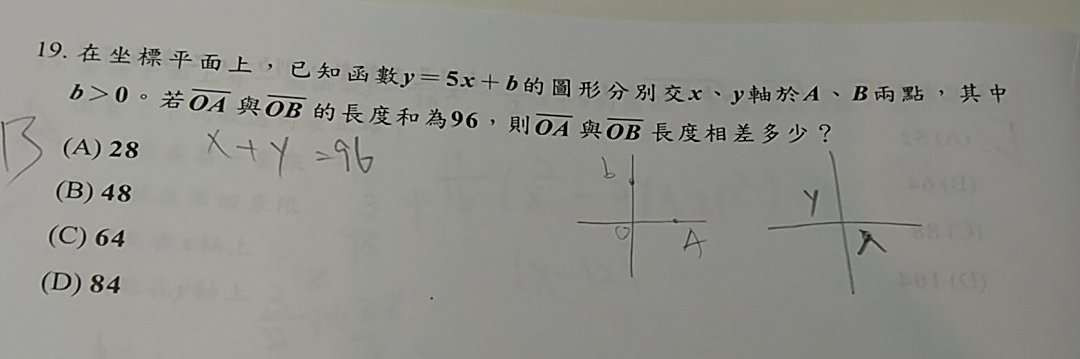 19. 在坐標平面上，已知函數y＝5x＋b的圖形分別交x、y軸於A、B兩點，其中
b＞0。若OA與OB的長度和為96，則OA與OB長度相差多少？
(A) 28
x+y=96
(B) 48
(C) 64
(D) 84
B
b
O
A
y